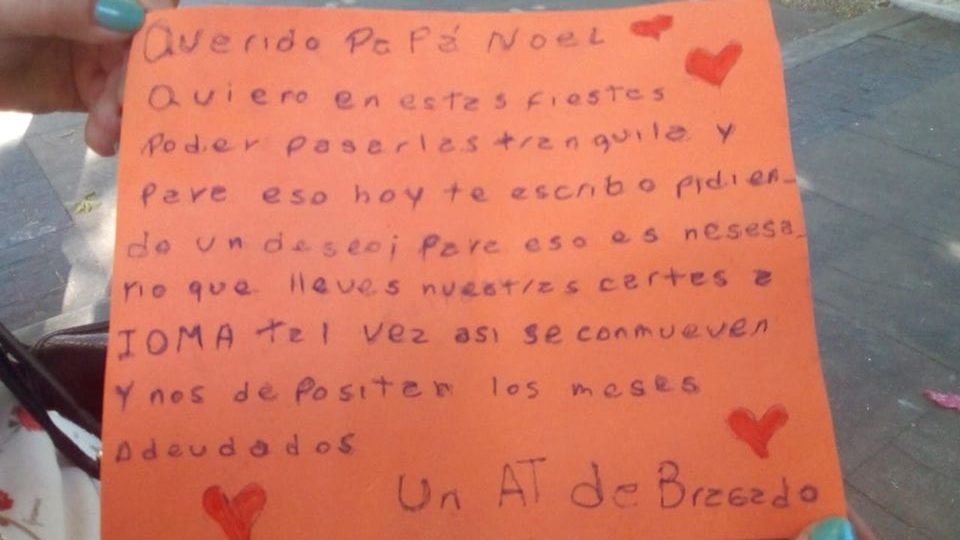 Querido Papá Noel
Quiero en estas fiestas
Poder pasarlas tranquila y
para eso hoy te escribo pidien-
do un deseo; para eso es nesesa-
rio que lleves nuestras cartas a
IOMA tal vez asi se conmueven
Y nos depositan los meses
Adeudados
Un AT de Bragado